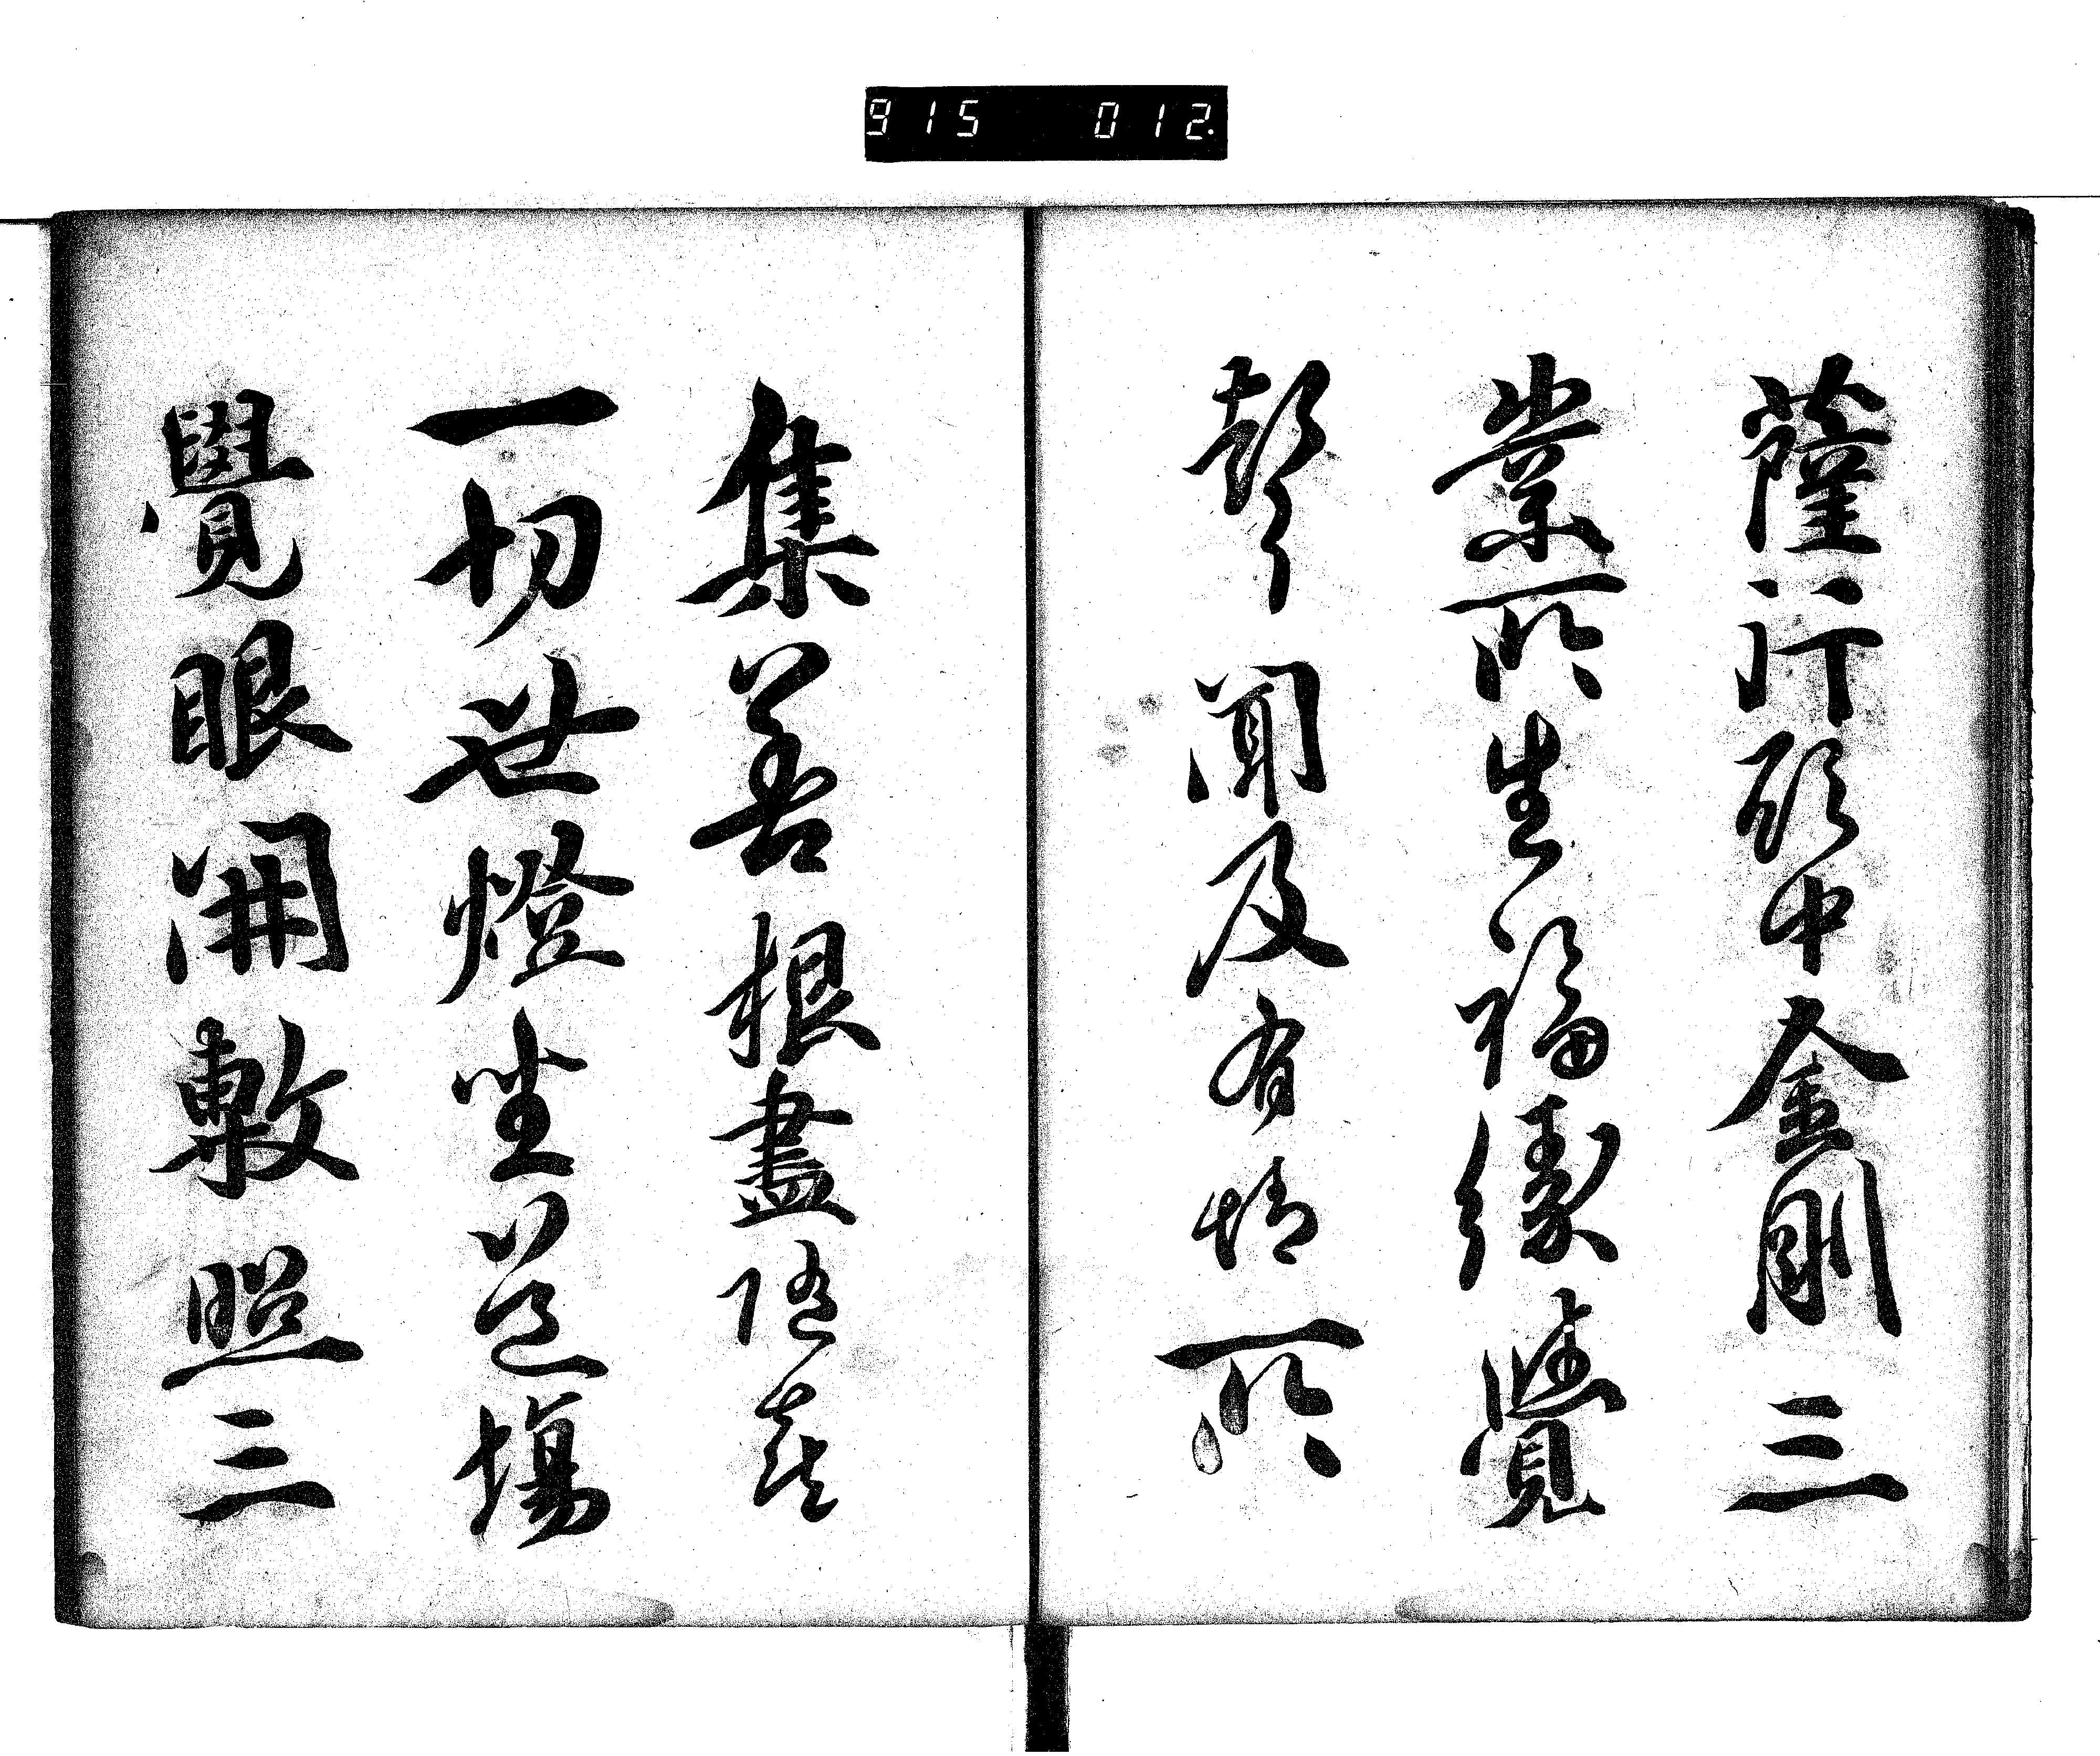 915 012.
薩行願中金剛三
業所生福縁覺
聲聞及有情所
集善根盡随喜
一切世燈坐道場
覺眼開敷照三